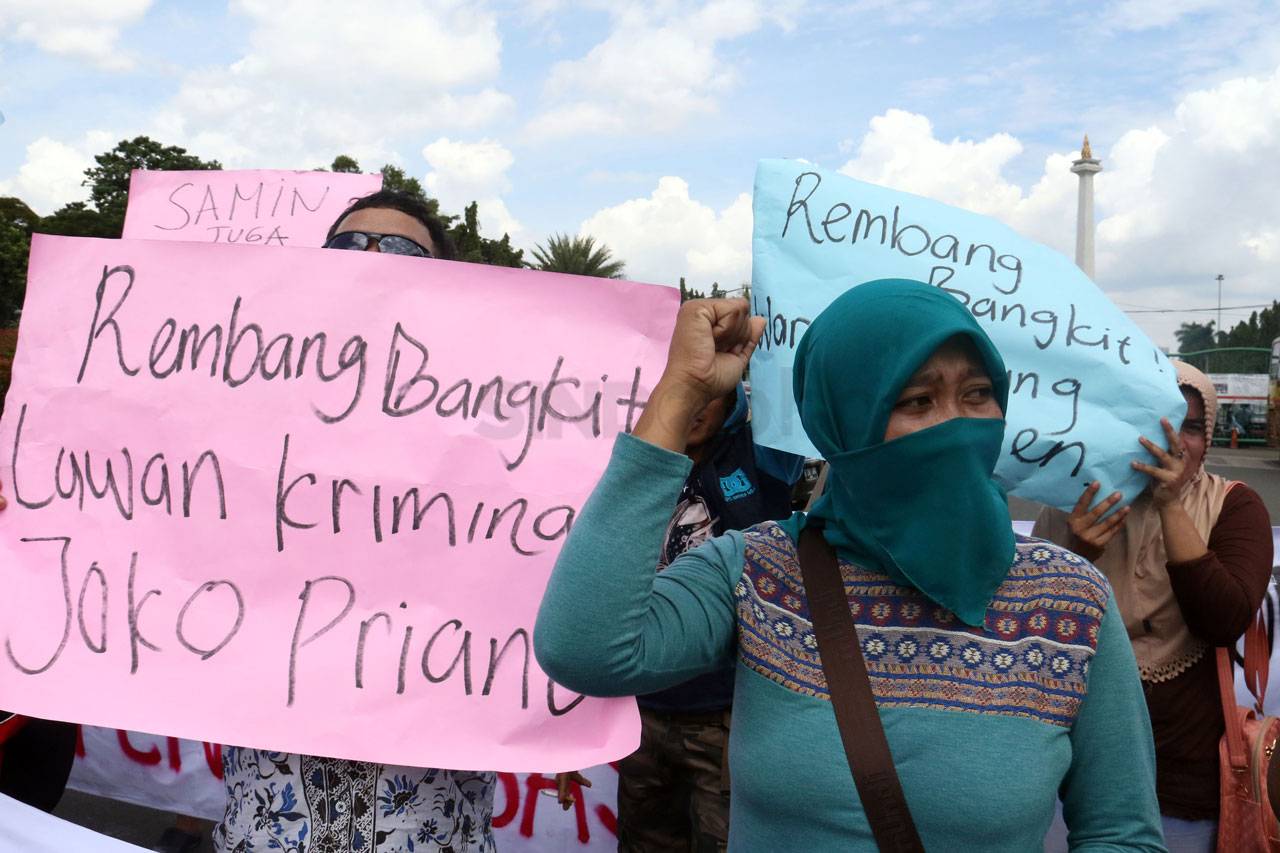 SAMIN
JUGA
Rembang Bangkit
Lawan krimina
Joko Priano
Rembang
Bangkit!